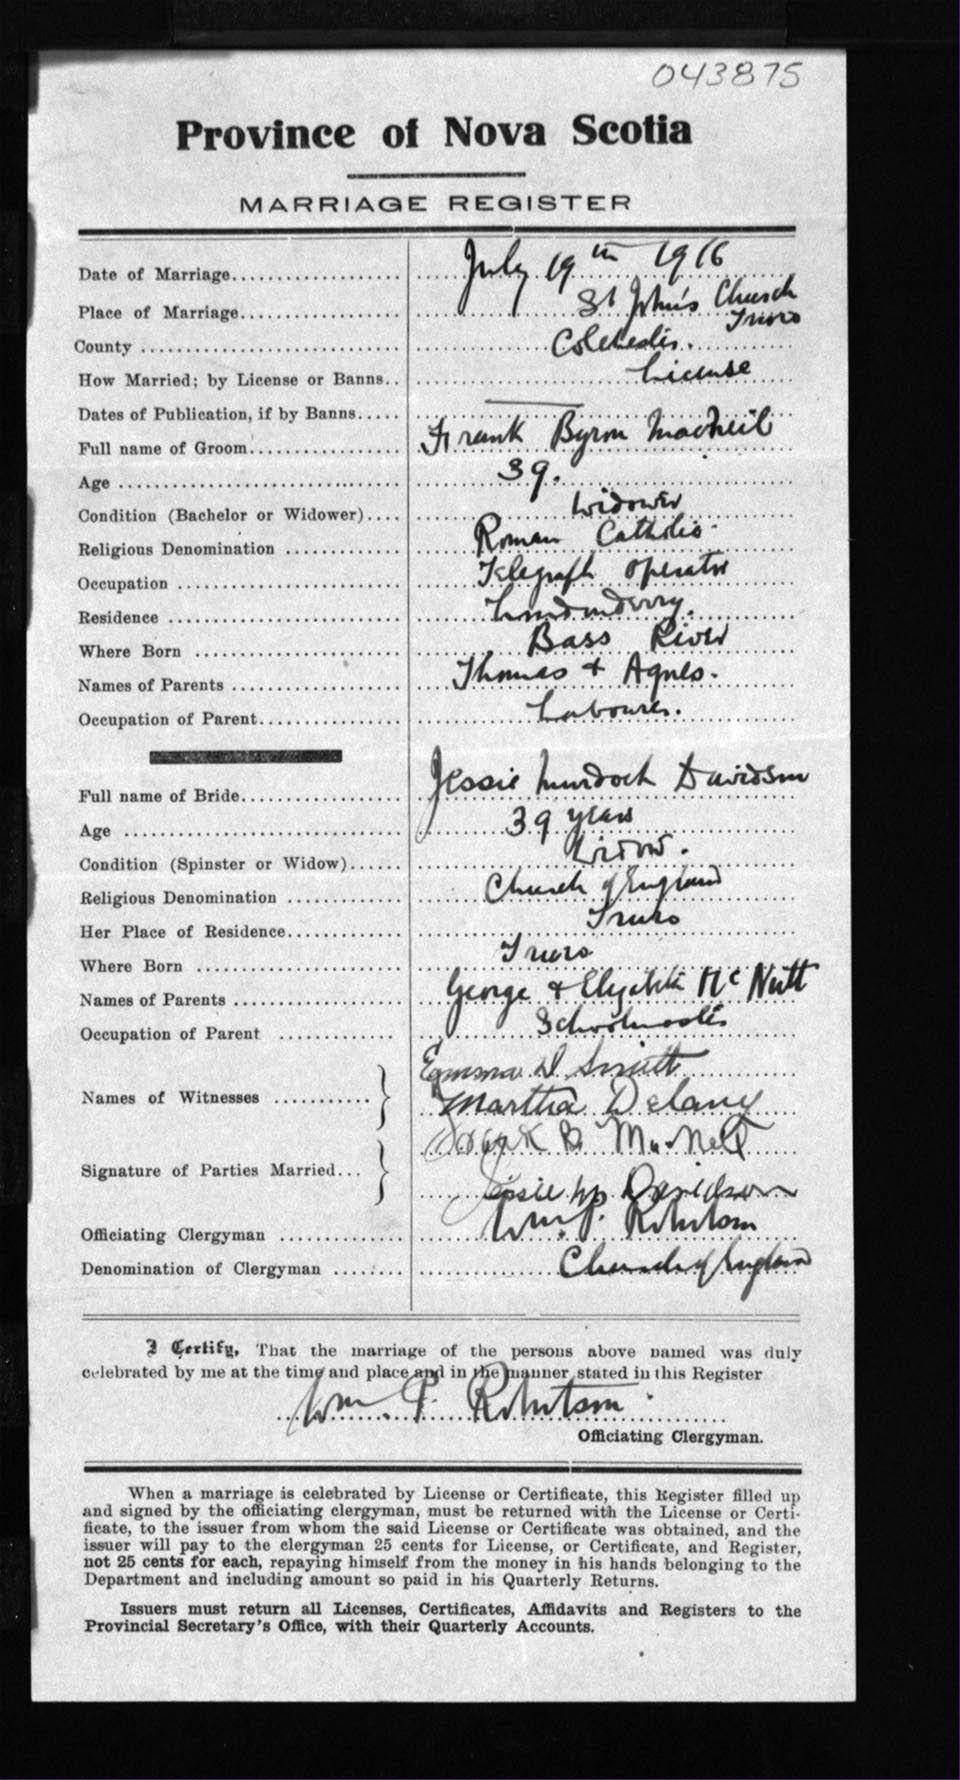 043875
Province of Nova Scotia
MARRIAGE REGISTER
Date of Marriage.................... July 19th 1916
Place of Marriage................... St John's Church Truro
County ........................... Colchester.
How Married; by License or Banns.. License
Dates of Publication, if by Banns..... —
Full name of Groom.................. Frank Byron MacNeil
Age ............................... 39.
Condition (Bachelor or Widower).... Widower
Religious Denomination ............. Roman Catholic
Occupation ......................... Telegraph Operator
Residence .......................... Londonderry.
Where Born ........................ Bass River
Names of Parents ................... Thomas + Agnes.
Occupation of Parent................ Labourer.
Full name of Bride.................. Jessie Murdoch Davidson
Age ............................... 39 years
Condition (Spinster or Widow)...... Widow.
Religious Denomination ............. Church of England
Her Place of Residence.............. Truro
Where Born ........................ Truro
Names of Parents ................... George + Elizabeth McNutt
Occupation of Parent .............. Schoolmaster
Emma D
Names of Witnesses ........... } Martha Delany
B.
Signature of Parties Married... } Jessie M Davidson
Officiating Clergyman ............. Wm. P. Robertson
Denomination of Clergyman ........ Church of England
I Certify, That the marriage of the persons above named was duly
celebrated by me at the time and place and in the manner stated in this Register
Wm. P. Robertson
Officiating Clergyman.
When a marriage is celebrated by License or Certificate, this Register filled up
and signed by the officiating clergyman, must be returned with the License or Certi-
ficate, to the issuer from whom the said License or Certificate was obtained, and the
issuer will pay to the clergyman 25 cents for License, or Certificate, and Register,
not 25 cents for each, repaying himself from the money in his hands belonging to the
Department and including amount so paid in his Quarterly Returns.
Issuers must return all Licenses, Certificates, Affidavits and Registers to the
Provincial Secretary's Office, with their Quarterly Accounts.